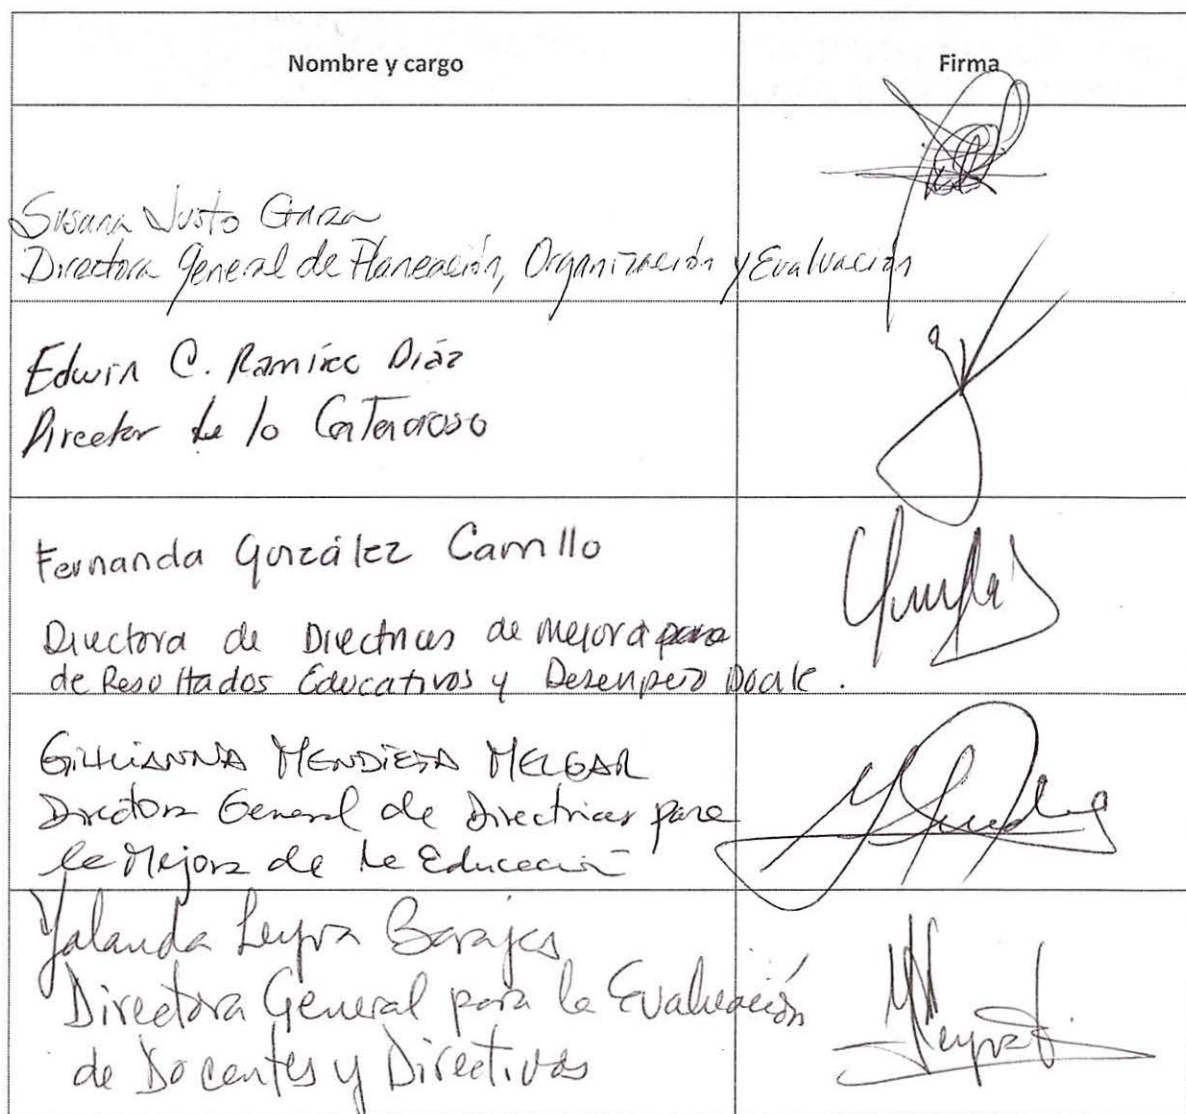 Nombre y cargo
Firma
Susana Justo Garza
Directora General de Planeación, Organización y Evaluación
Edwin C. Ramírez Díaz
Director de lo Contencioso
Fernanda González Carrillo
Directora de Directrices de mejora para
de Resultados Educativos y Desempeño Docente.
GIULIANNA MENDIETA MELGAR
Directora General de Directrices para
la Mejora de la Educación
Yolanda Leyva Barajas
Directora General para la Evaluación
de Docentes y Directivos